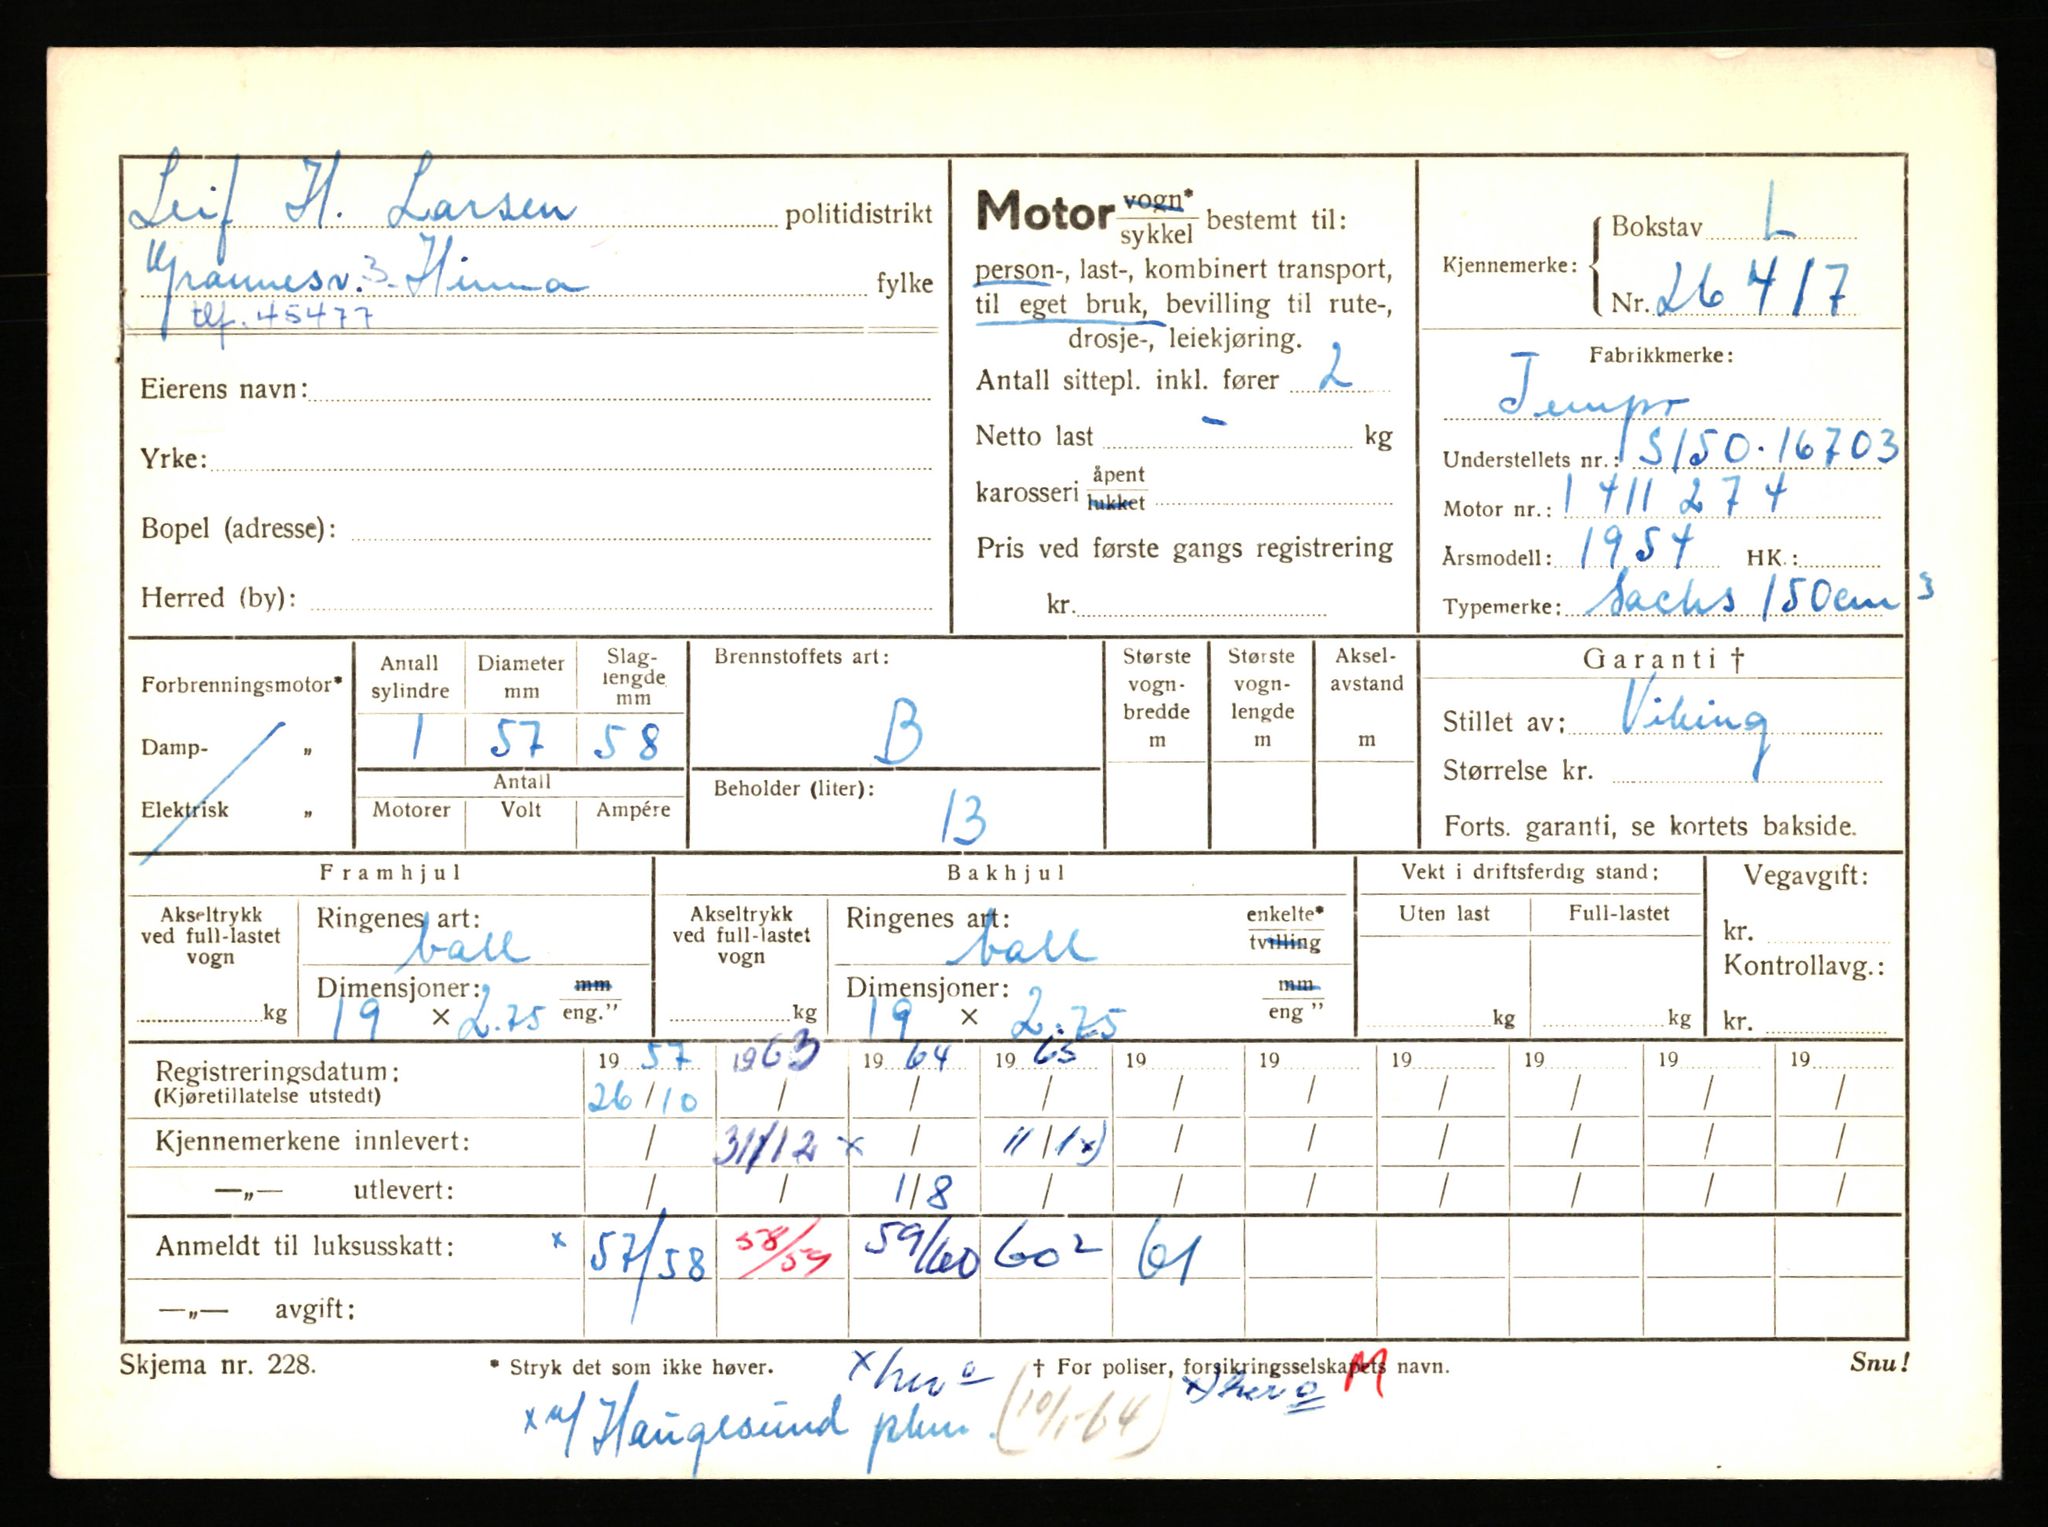 Leif H. Larsen politidistrikt
Grannesv. 3 Hinna fylke
tlf. 45477
Eierens navn:
Yrke:
Bopel (adresse):
Herred (by):
Motor vogn* sykkel bestemt til:
person-, last-, kombinert transport,
til eget bruk, bevilling til rute-,
drosje-, leiekjøring.
Antall sittepl. inkl. fører 2
Netto last - kg
karosseri åpent lukket
Pris ved første gangs registrering
kr.
Kjennemerke:
Bokstav L
Nr. 26417
Fabrikkmerke:
Tempo
Understellets nr.: S150.16703
Motor nr.: 1411274
Årsmodell: 1954 HK.:
Typemerke: Sachs 150cm3
Forbrenningsmotor*
Damp- „
Elektrisk „
Antall sylindre
1
Diameter mm
57
Slag-lengde mm
58
Antall
Motorer Volt Ampére
Brennstoffets art:
B
Beholder (liter):
13
Største vogn-bredde m
Største vogn-lengde m
Aksel-avstand m
Garanti †
Stillet av: Viking
Størrelse kr.
Forts. garanti, se kortets bakside.
Framhjul
Akseltrykk ved full-lastet vogn
kg
Ringenes art:
ball
Dimensjoner: mm
19 × 2.75 eng.”
Bakhjul
Akseltrykk ved full-lastet vogn
kg
Ringenes art: enkelte* tvilling
ball
Dimensjoner: mm
19 × 2.75 eng”
Vekt i driftsferdig stand:
Uten last Full-lastet
kg kg
Vegavgift:
kr.
Kontrollavg.:
kr.
Registreringsdatum: 1957 1963 1964 1965 19 19 19 19 19 19
(Kjøretillatelse utstedt) 26/10 / / / / / / / / /
Kjennemerkene innlevert: / 31/12 x / 11/1 x) / / / / / /
—„— utlevert: / / 1/8 / / / / / / /
Anmeldt til luksusskatt: x 57/58 58/59 59/60 60² 61
—„— avgift:
Skjema nr. 228.
* Stryk det som ikke høver.
† For poliser, forsikringsselskapets navn.
Snu!
M
x Haugesund (10/1-64)